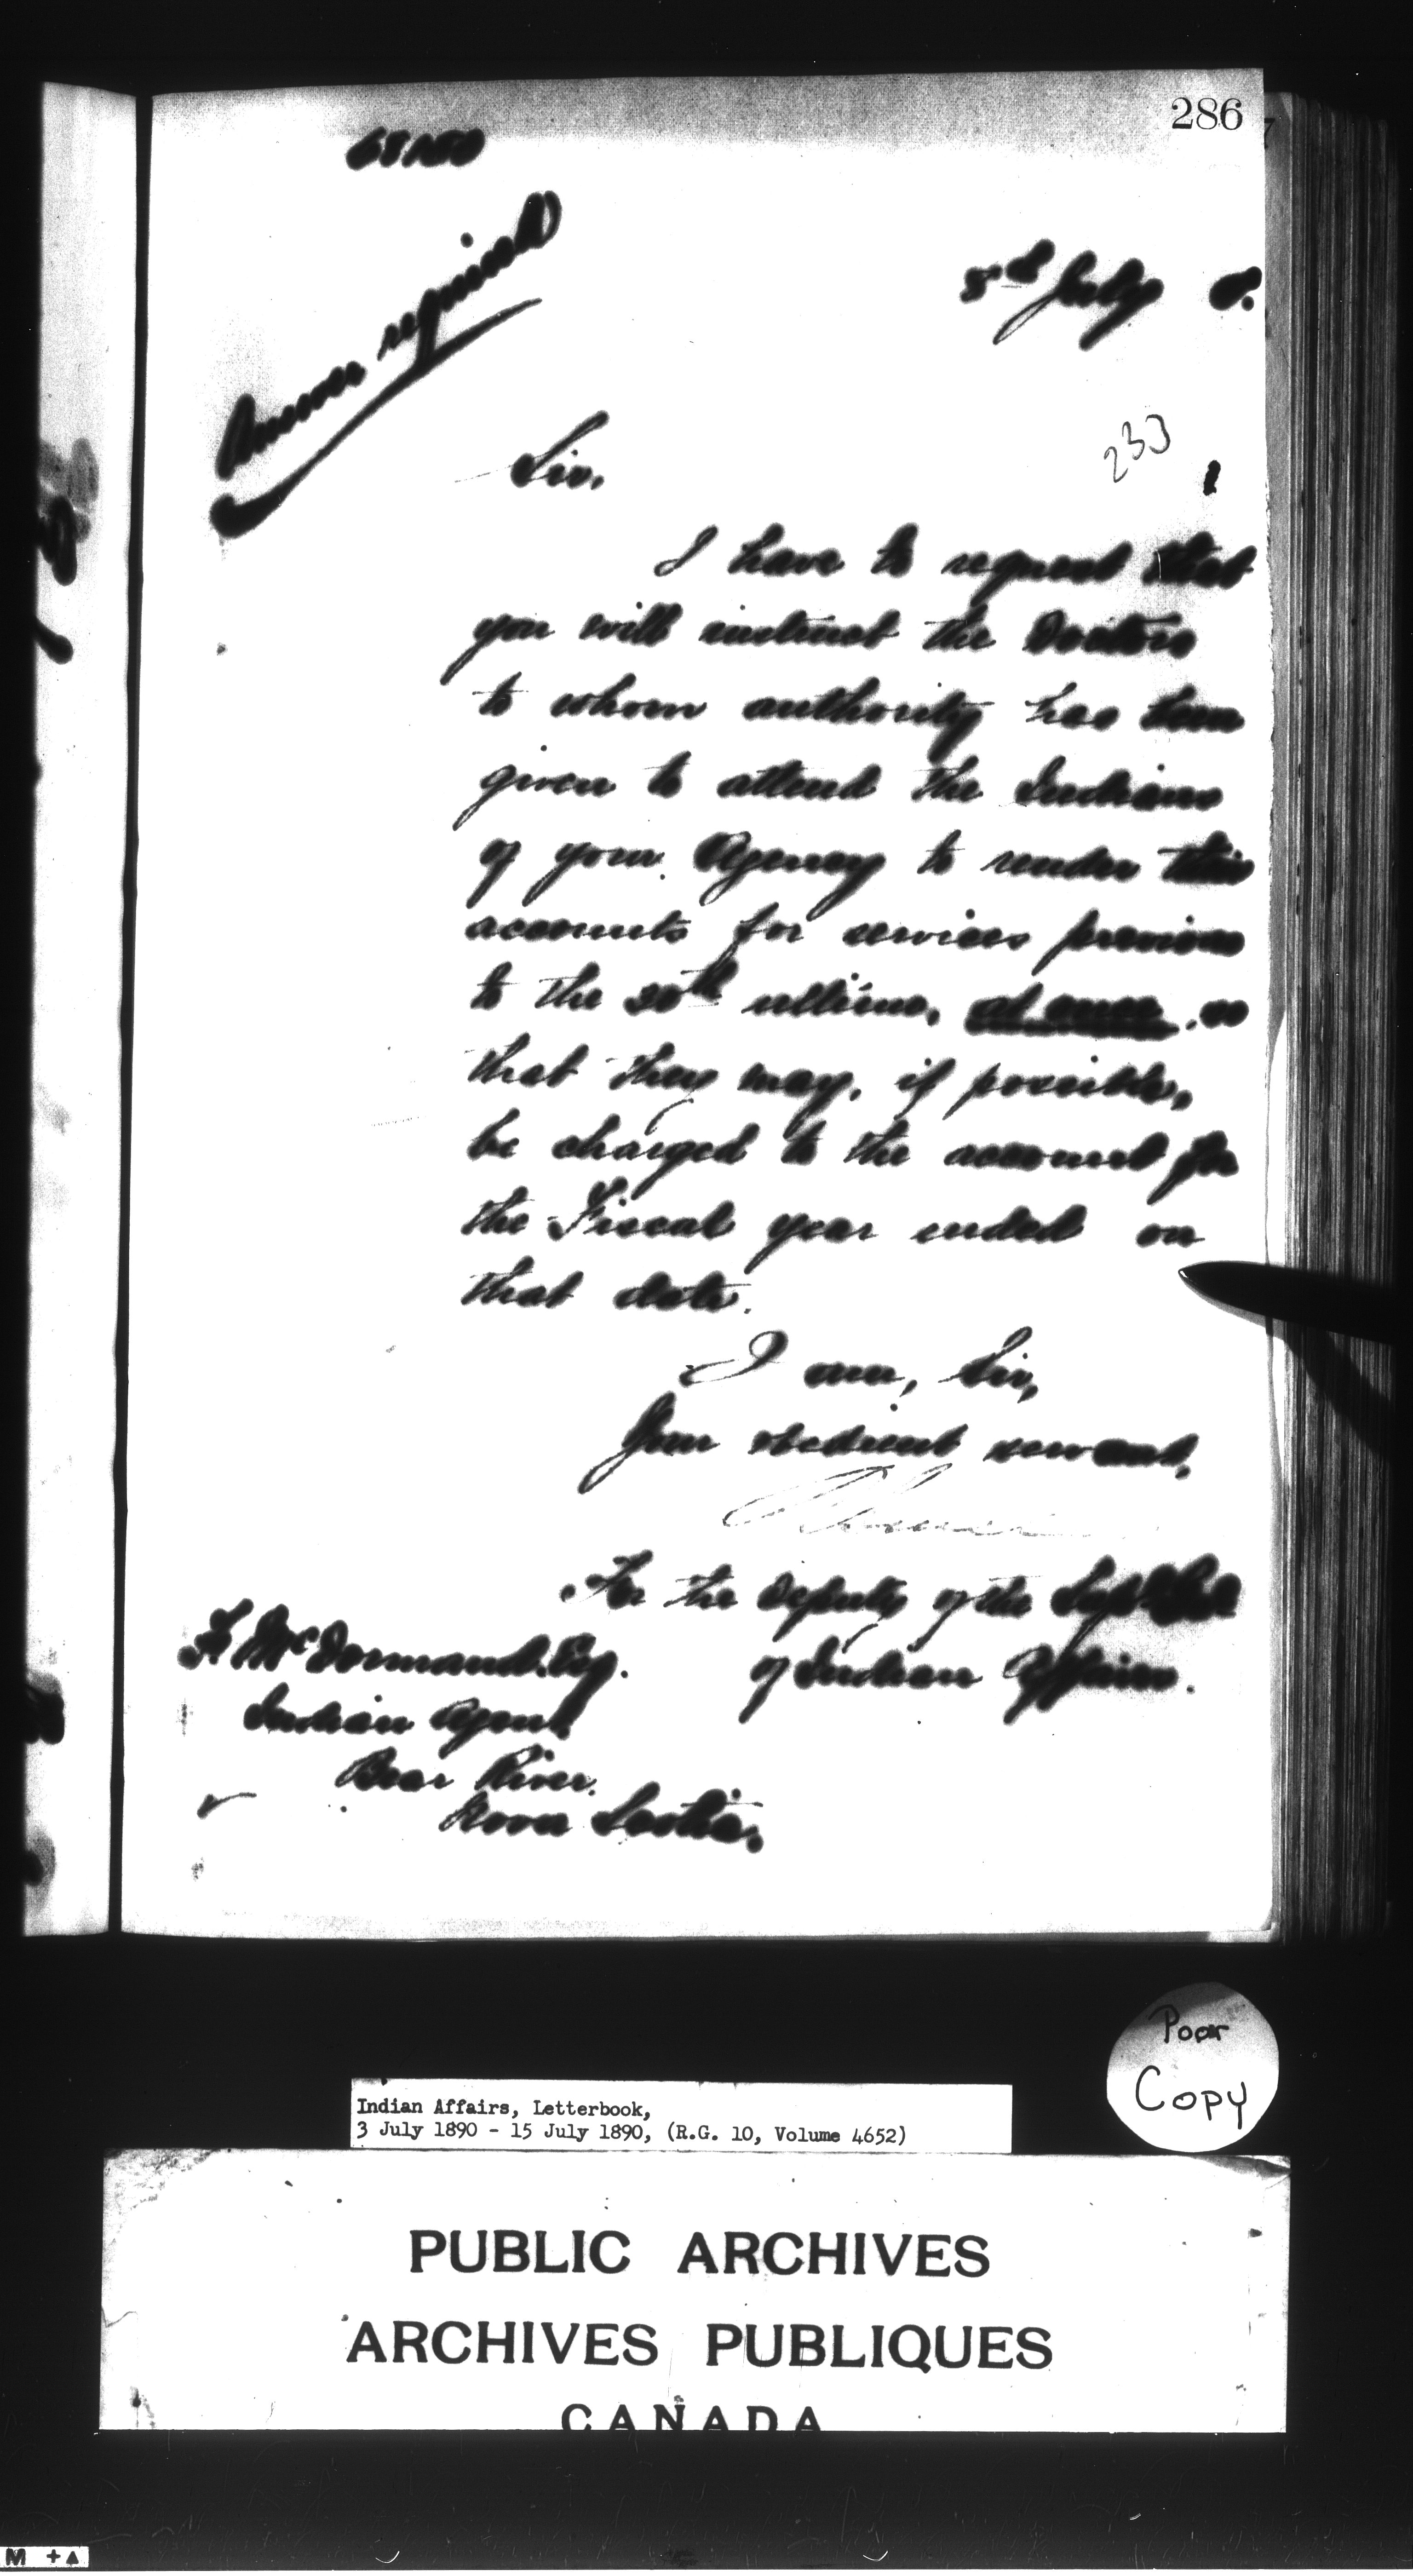 286
Answer required
8th July 0.
Sir,
233
I have to request that
you will instruct the Doctors
to whom authority has been
given to attend the Indians
of your Agency to render their
accounts for services previous
to the 30th ultimo, at once, so
that they may, if possible,
be charged to the account for
the Fiscal year ended on
that date.
I am, Sir,
Your obedient servant,
For the Deputy of the Supt Genl
of Indian Affairs.
F. McDormand. Esq.
Indian Agent
Bear River.
Nova Scotia.
Poor
Copy
Indian Affairs, Letterbook,
3 July 1890 - 15 July 1890, (R.G. 10, Volume 4652)
PUBLIC ARCHIVES
ARCHIVES PUBLIQUES
CANADA